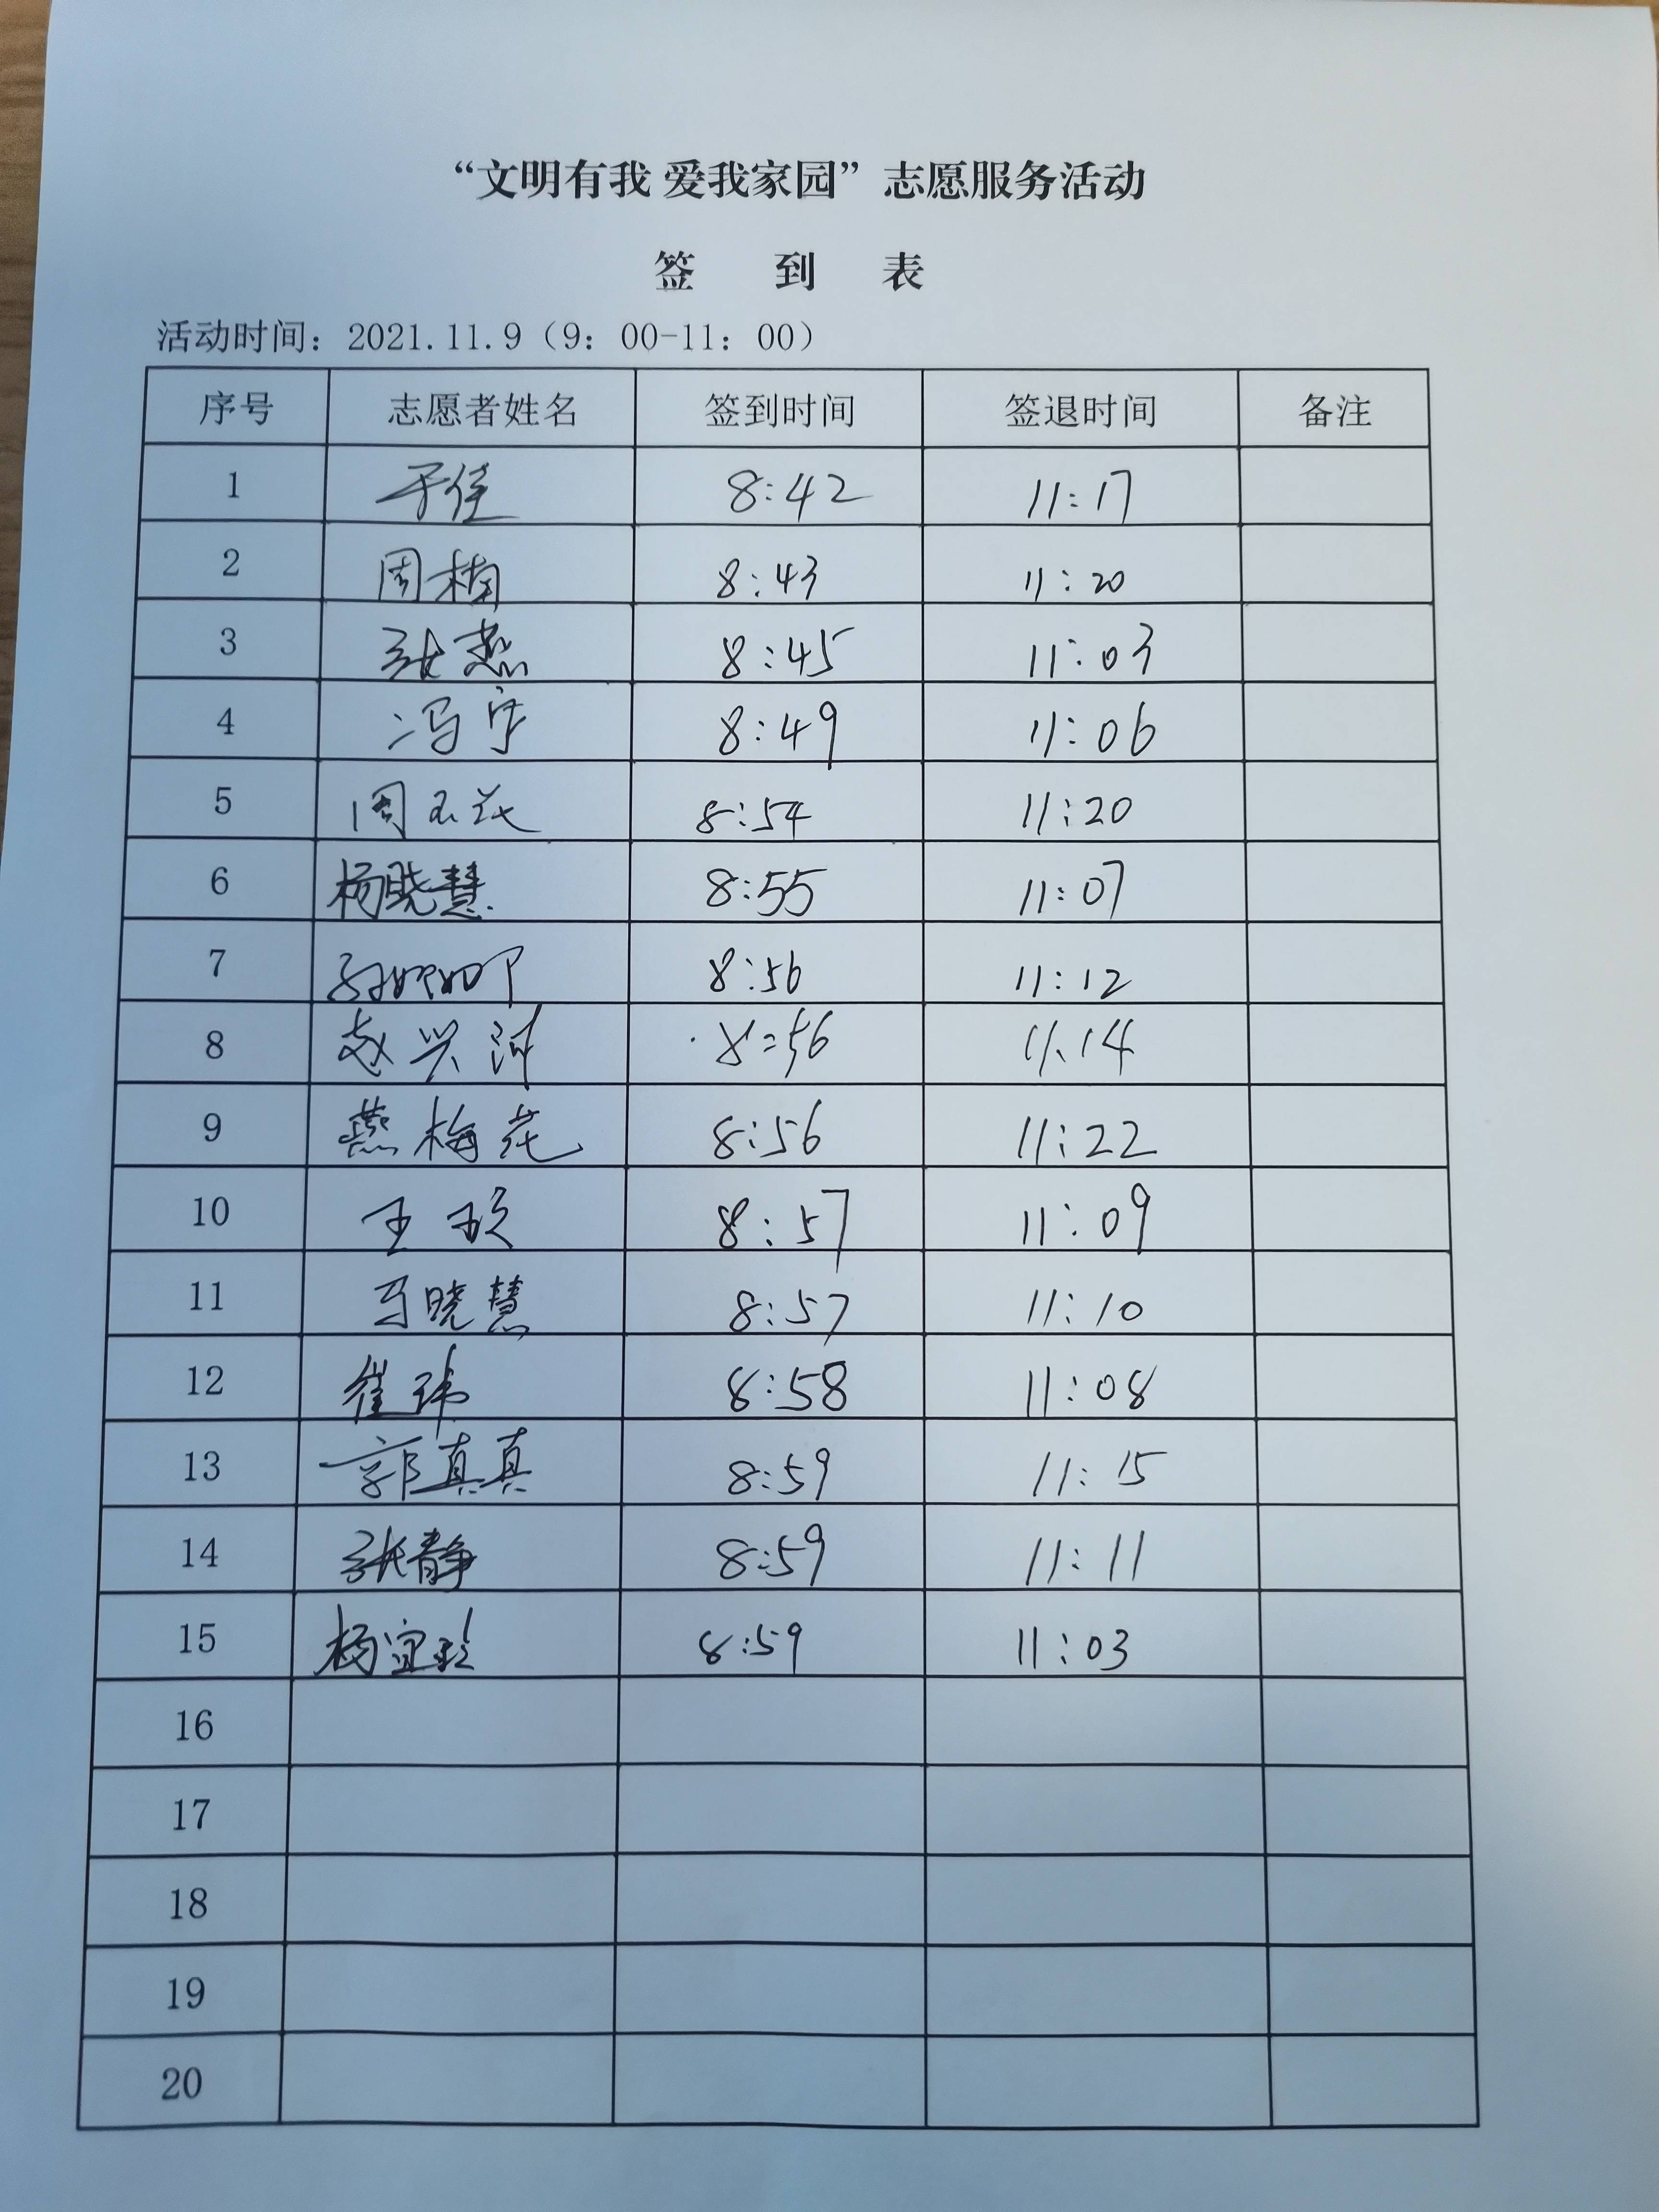 “文明有我 爱我家园”志愿服务活动
签 到 表
活动时间：2021.11.9（9：00-11：00）
序号 志愿者姓名 签到时间 签退时间 备注
1 于佳 8:42 11:17
2 周楠 8:43 11:20
3 张燕 8:45 11:03
4 冯宇 8:49 11:06
5 周玉花 8:54 11:20
6 杨晓慧 8:55 11:07
7 8:56 11:12
8 赵兴河 8:56 11:14
9 燕梅花 8:56 11:22
10 王 8:57 11:09
11 马晓慧 8:57 11:10
12 崔玮 8:58 11:08
13 郭真真 8:59 11:15
14 张静 8:59 11:11
15 杨宜 8:59 11:03
16
17
18
19
20